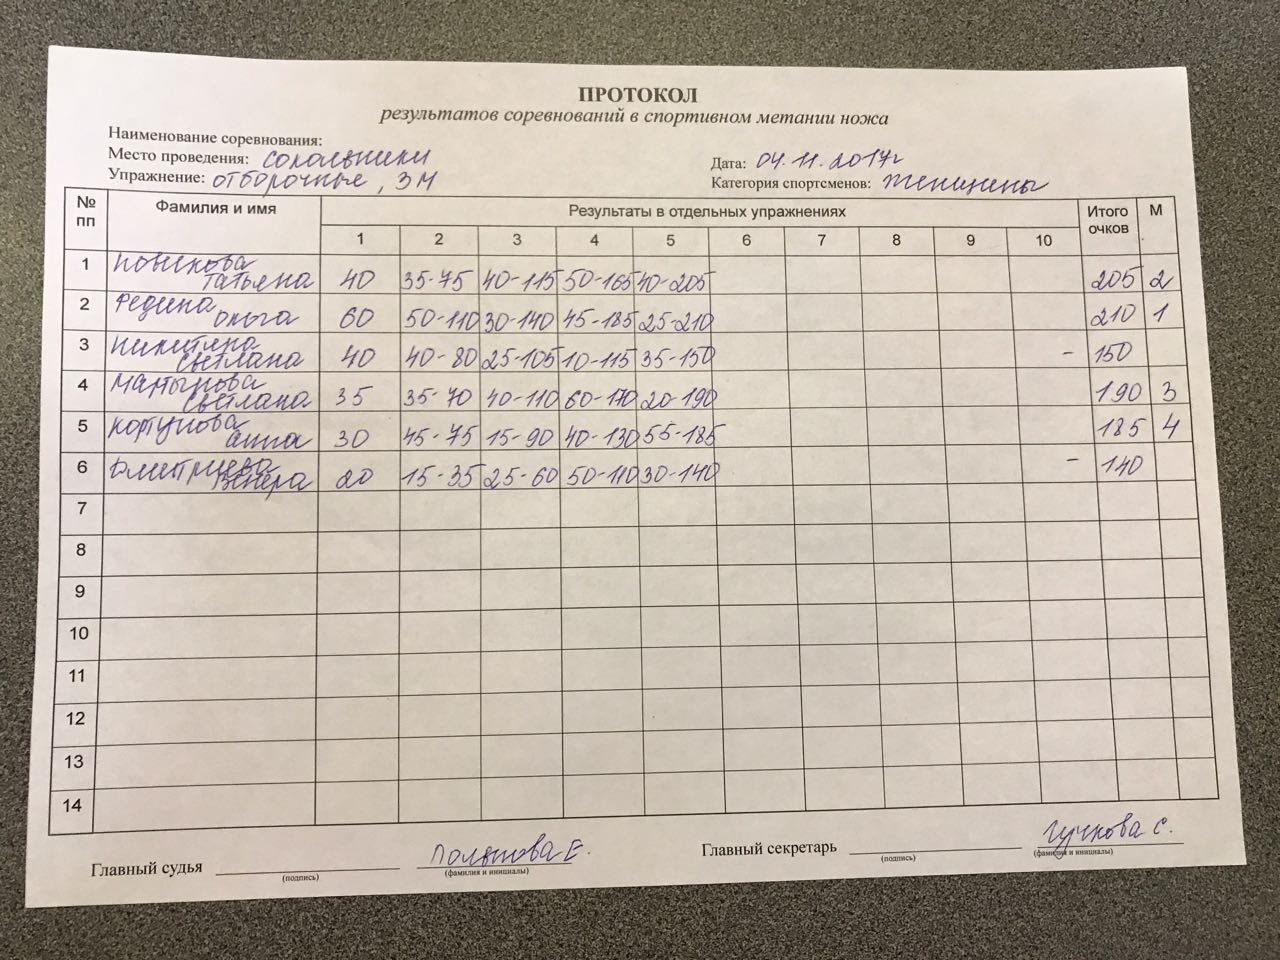 ПРОТОКОЛ
результатов соревнований в спортивном метании ножа
Наименование соревнования:
Место проведения: Сокольники
Дата: 04.11.2017г
Упражнение: отборочные, 3М
Категория спортсменов: Женщины
№ пп Фамилия и имя Результаты в отдельных упражнениях Итого очков М
1 2 3 4 5 6 7 8 9 10
1 Новикова Татьяна 40 35-75 40-115 50-165 40-205 205 2
2 Федина Ольга 60 50-110 30-140 45-185 25-210 210 1
3 Светлана 40 40-80 25-105 10-115 35-150 - 150
4 Мартынова Светлана 35 35-70 40-110 60-170 20-190 190 3
5 Кортунова Анна 30 45-75 15-90 40-130 55-185 185 4
6 Дмитриева Венера 20 15-35 25-60 50-110 30-140 - 140
7
8
9
10
11
12
13
14
Главный судья Е.
(подпись) (фамилия и инициалы)
Главный секретарь Гучкова С.
(подпись) (фамилия и инициалы)